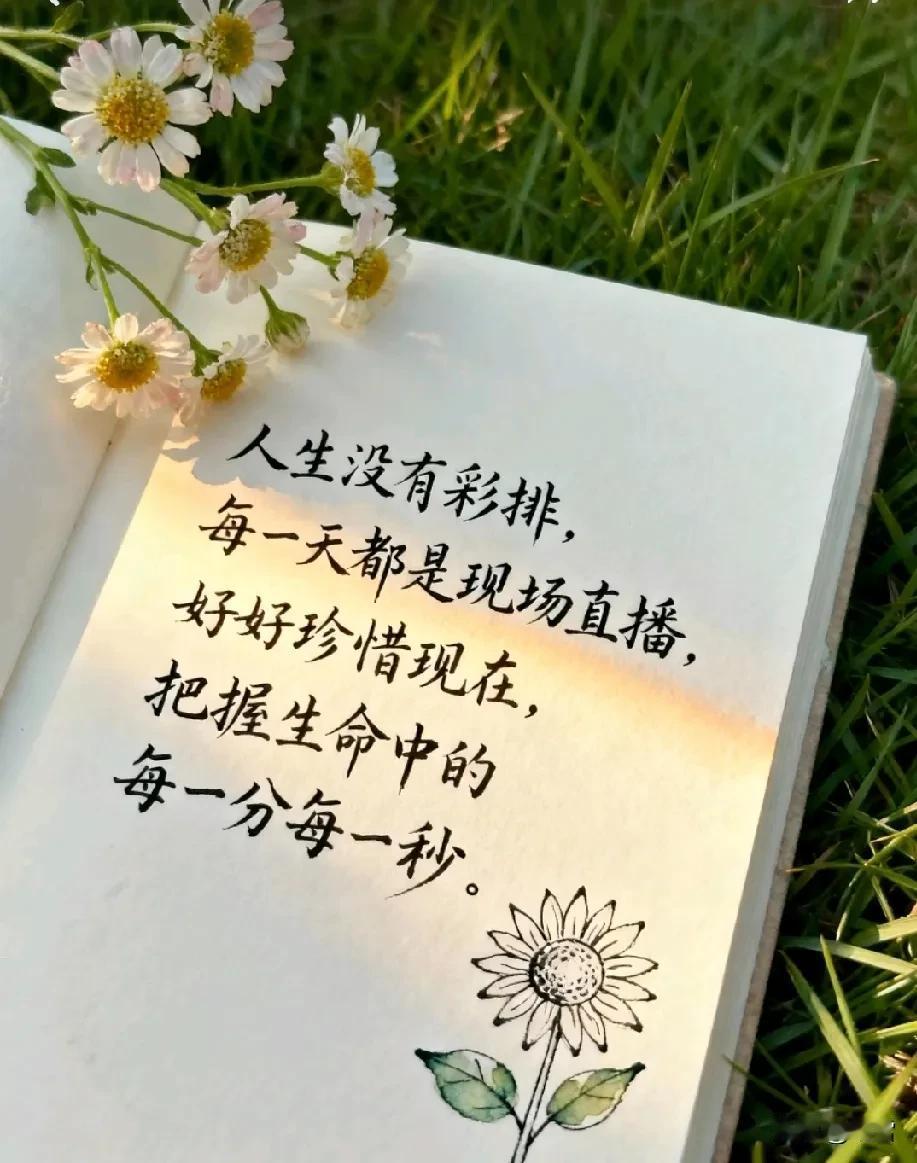 人生没有彩排，
每一天都是现场直播，
好好珍惜现在，
把握生命中的
每一分每一秒。